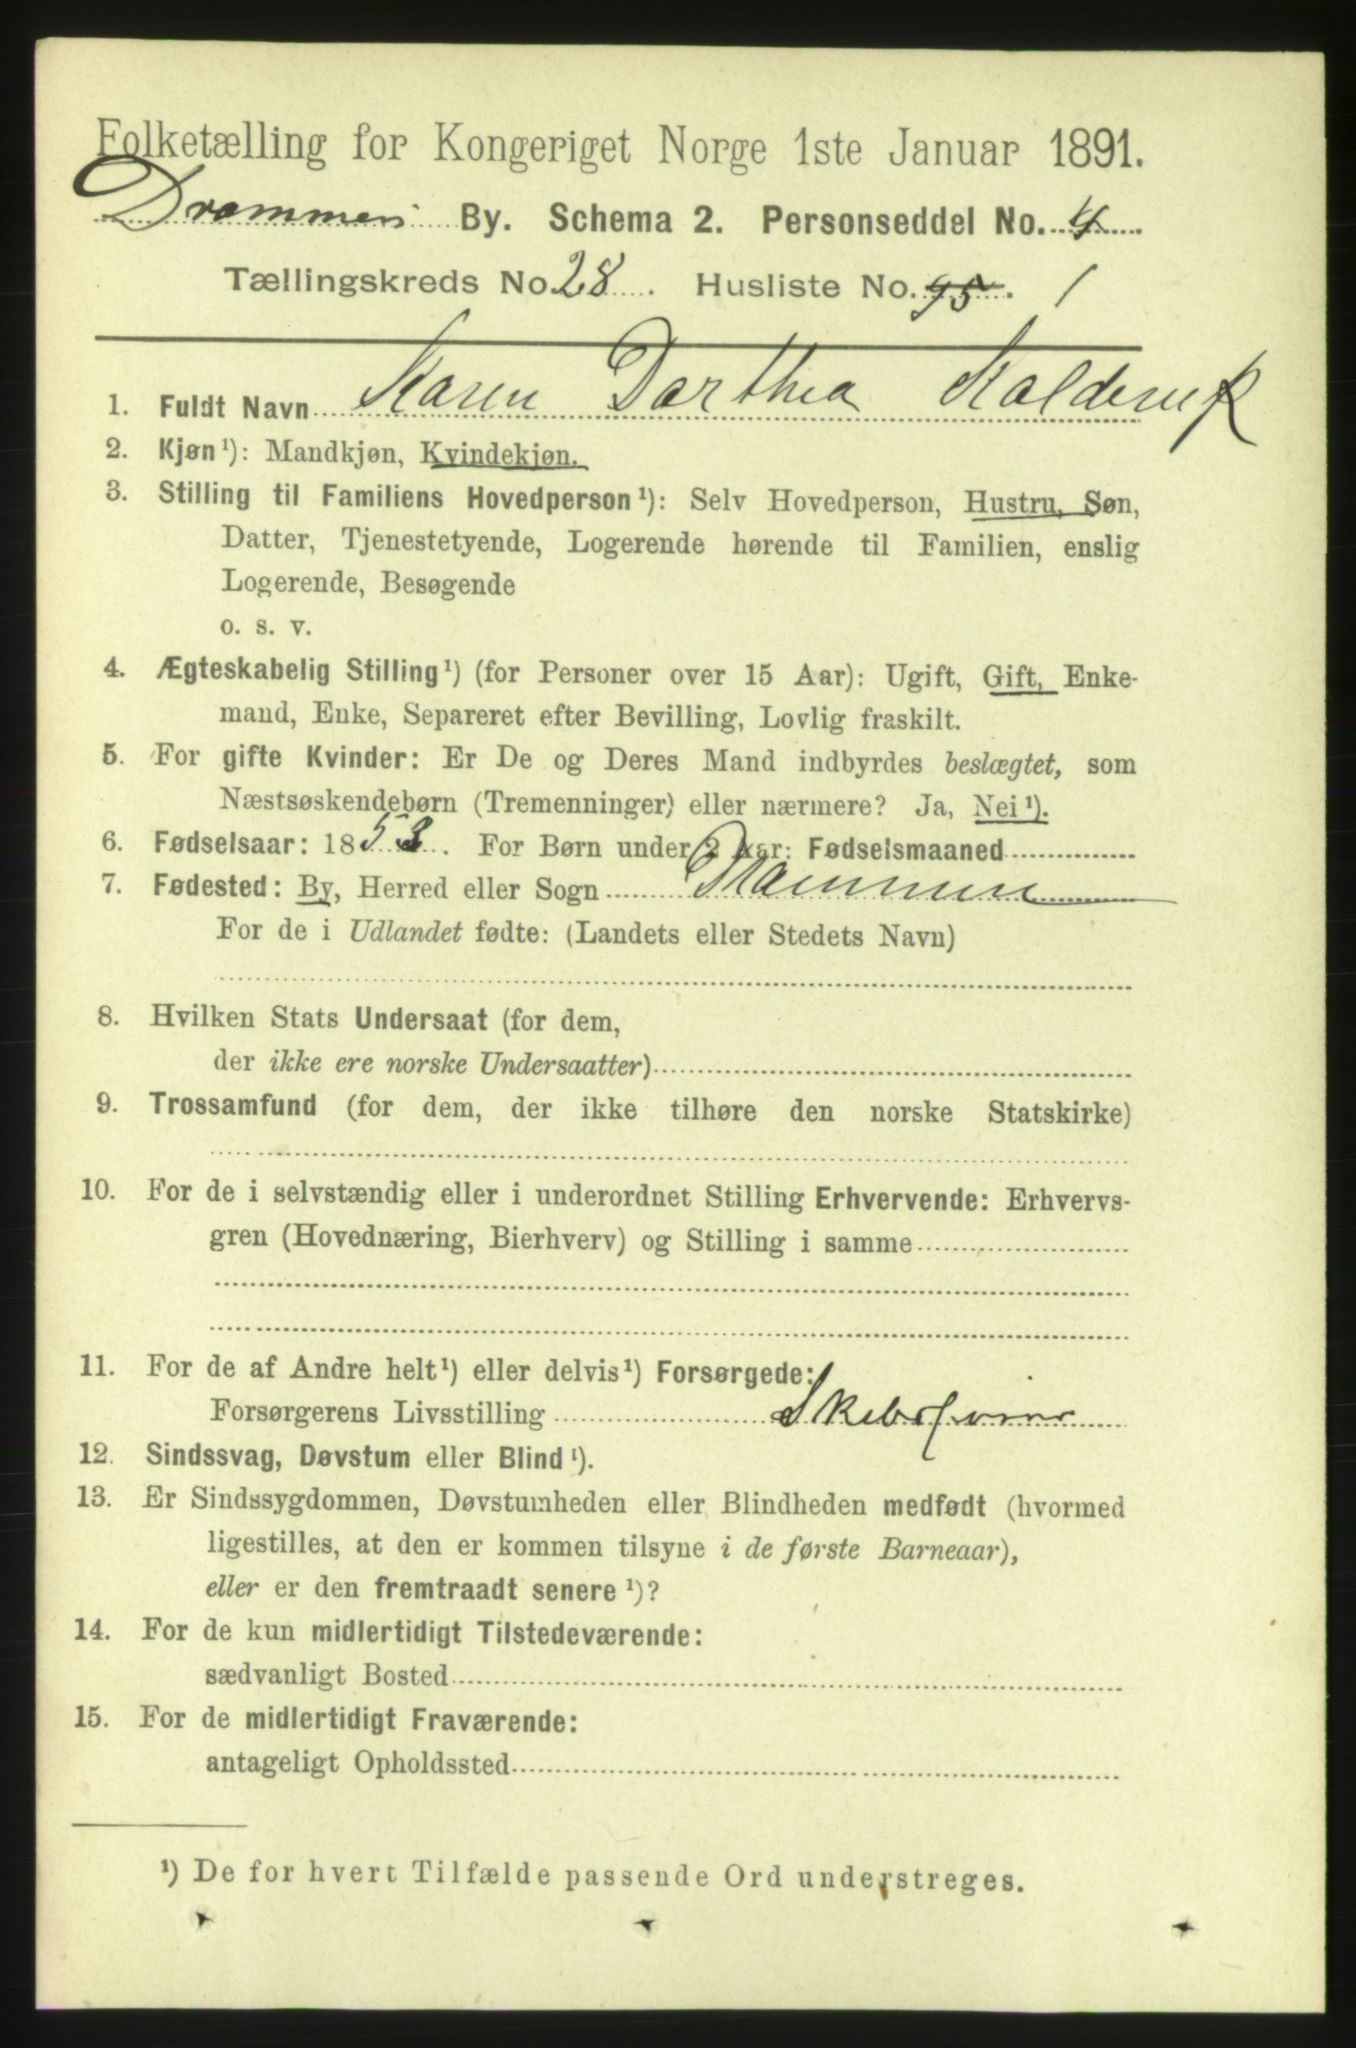 Folketælling for Kongeriget Norge 1ste Januar 1891.
Drammen By. Schema 2. Personseddel No. 4
Tællingskreds No. 28. Husliste No. 95. 1
1. Fuldt Navn Karen Dorthea Kolderup
2. Kjøn¹): Mandkjøn, Kvindekjøn.
3. Stilling til Familiens Hovedperson¹): Selv Hovedperson, Hustru, Søn,
Datter, Tjenestetyende, Logerende hørende til Familien, enslig
Logerende, Besøgende
o. s. v.
4. Ægteskabelig Stilling¹) (for Personer over 15 Aar): Ugift, Gift, Enke-
mand, Enke, Separeret efter Bevilling, Lovlig fraskilt.
5. For gifte Kvinder: Er De og Deres Mand indbyrdes beslægtet, som
Næstsøskendebørn (Tremenninger) eller nærmere? Ja, Nei¹).
6. Fødselsaar: 1853. For Børn under 2 Aar: Fødselsmaaned
7. Fødested: By, Herred eller Sogn Drammen
For de i Udlandet fødte: (Landets eller Stedets Navn)
8. Hvilken Stats Undersaat (for dem,
der ikke ere norske Undersaatter)
9. Trossamfund (for dem, der ikke tilhøre den norske Statskirke)
10. For de i selvstændig eller i underordnet Stilling Erhvervende: Erhvervs-
gren (Hovednæring, Bierhverv) og Stilling i samme
11. For de af Andre helt¹) eller delvis¹) Forsørgede:
Forsørgerens Livsstilling
12. Sindssvag, Døvstum eller Blind¹).
13. Er Sindssygdommen, Døvstumheden eller Blindheden medfødt (hvormed
ligestilles, at den er kommen tilsyne i de første Barneaar),
eller er den fremtraadt senere¹)?
14. For de kun midlertidigt Tilstedeværende:
sædvanligt Bosted
15. For de midlertidigt Fraværende:
antageligt Opholdssted
¹) De for hvert Tilfælde passende Ord understreges.